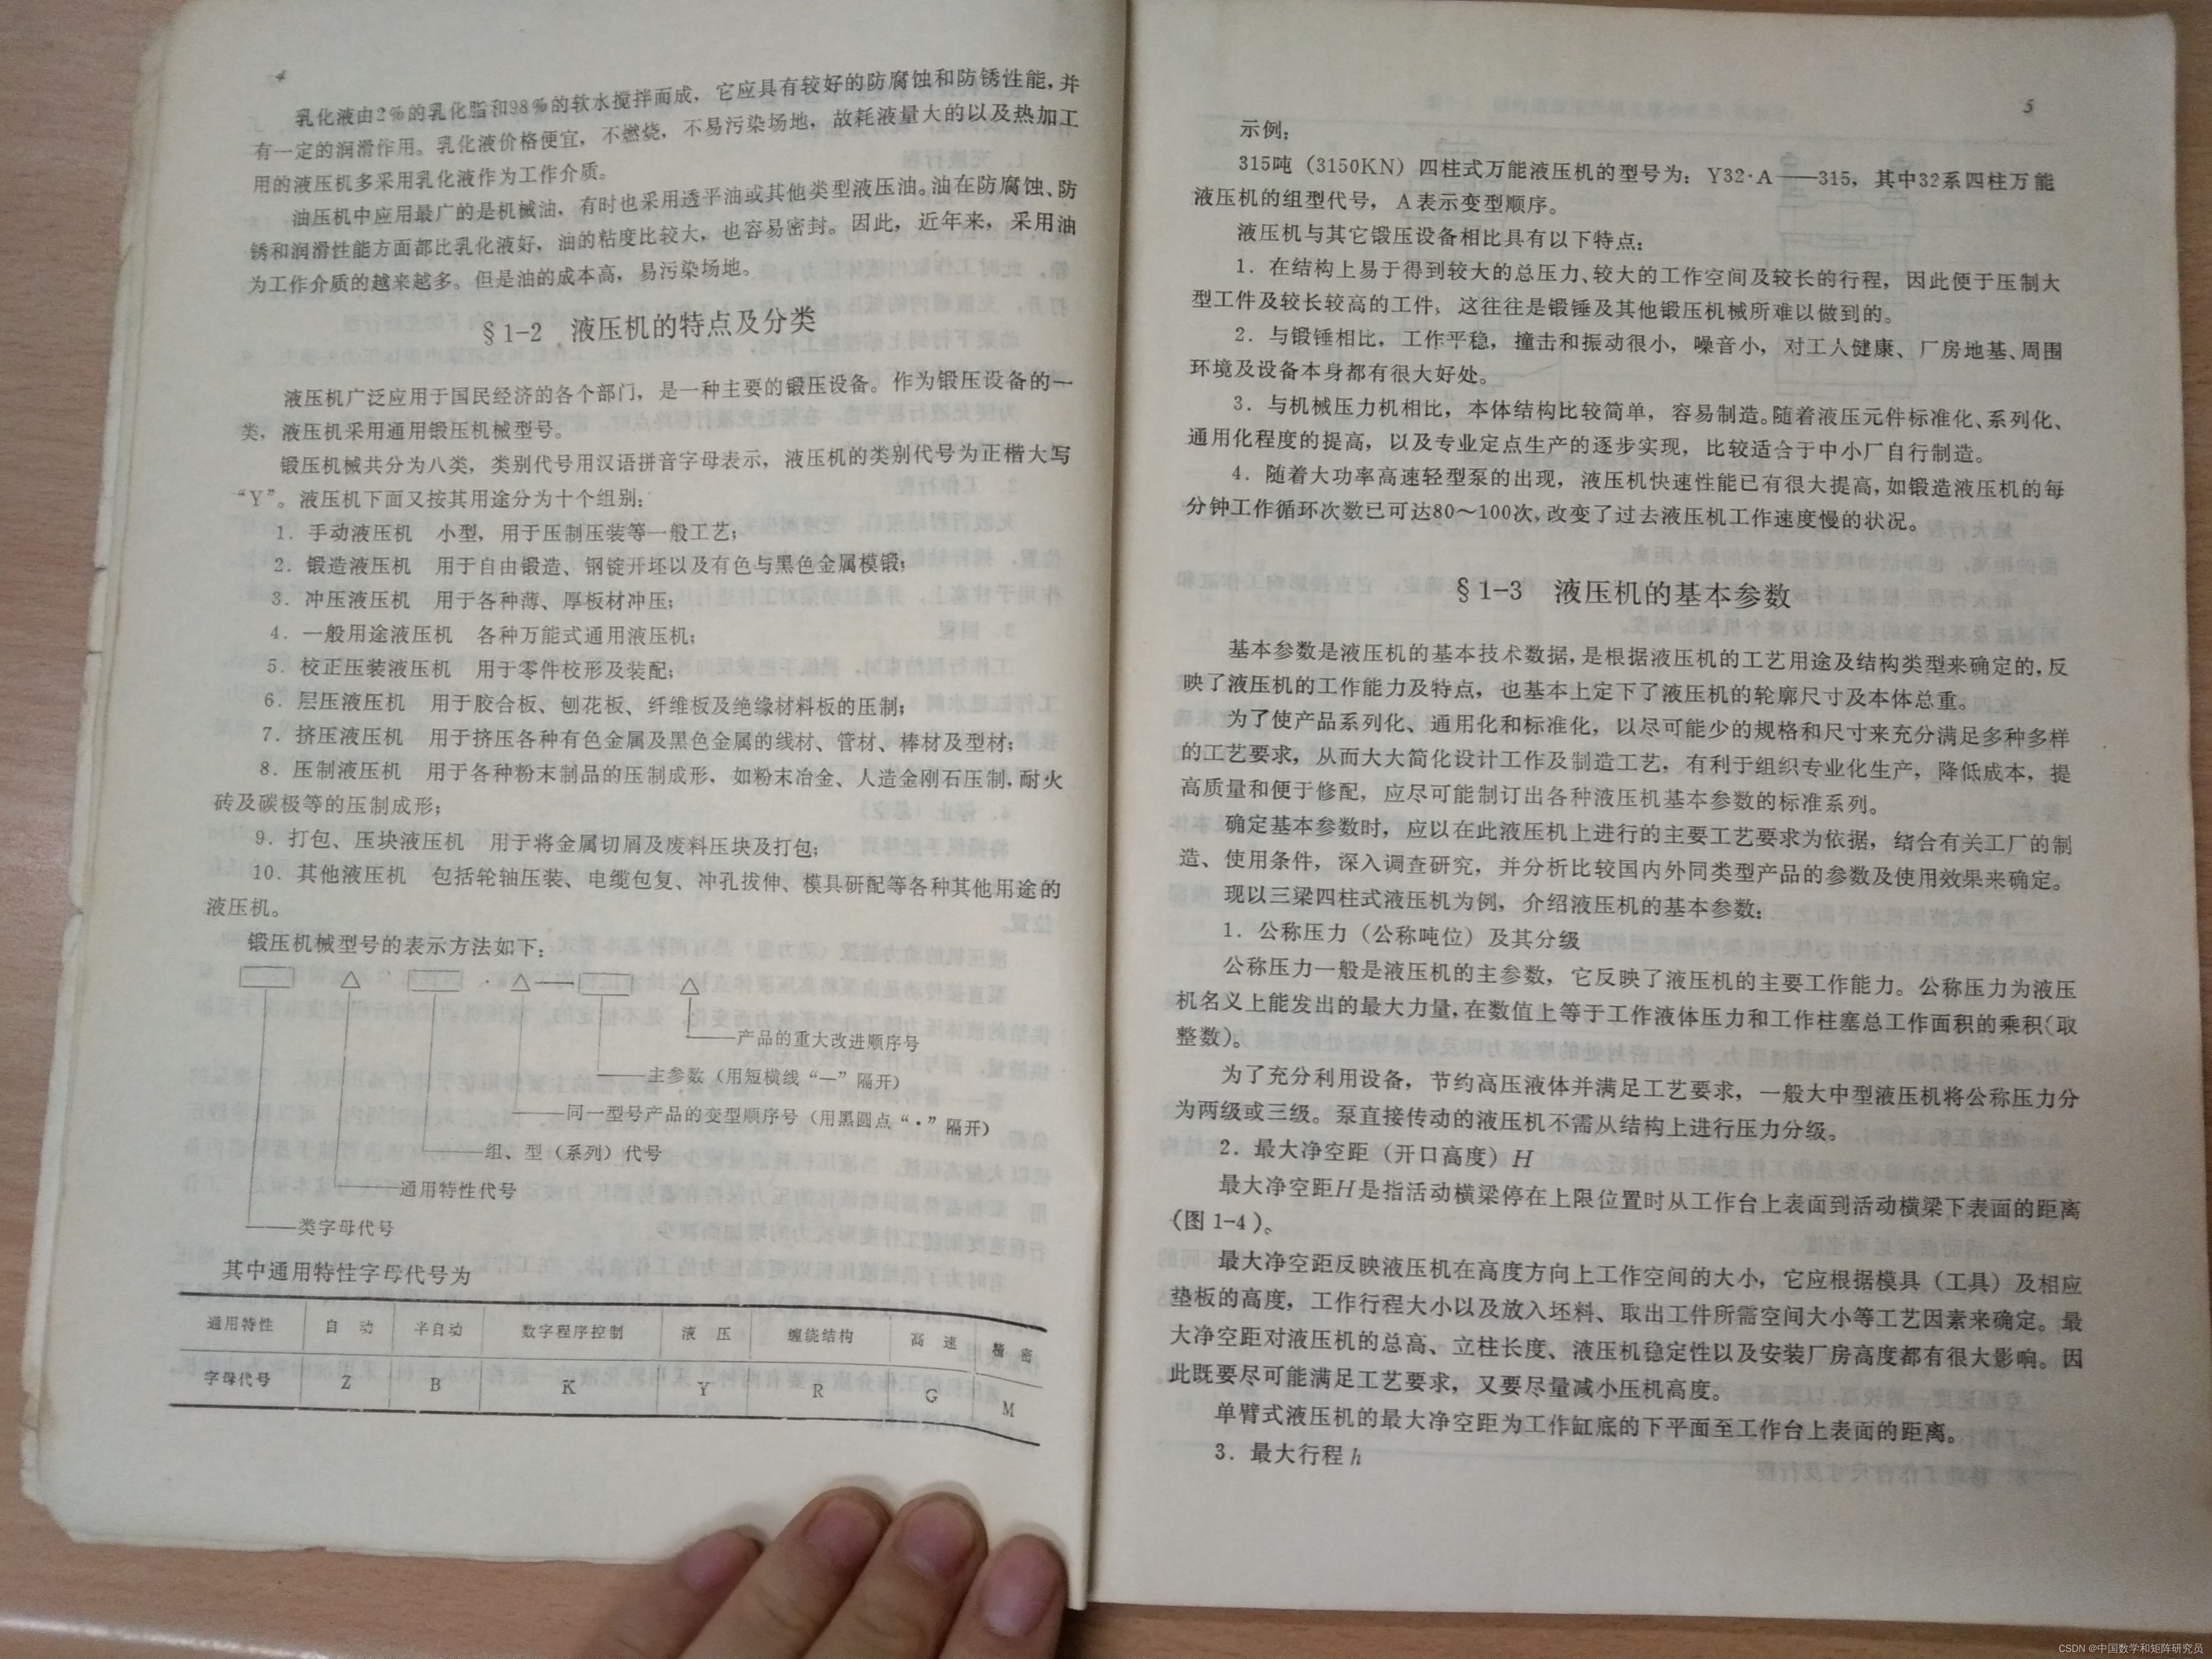 4
乳化液由2%的乳化脂和98%的软水搅拌而成，它应具有较好的防腐蚀和防锈性能，并
有一定的润滑作用。乳化液价格便宜，不燃烧，不易污染场地，故耗液量大的以及热加工
用的液压机多采用乳化液作为工作介质。
油压机中应用最广的是机械油，有时也采用透平油或其他类型液压油。油在防腐蚀、防
锈和润滑性能方面都比乳化液好，油的粘度比较大，也容易密封。因此，近年来，采用油
为工作介质的越来越多。但是油的成本高，易污染场地。
§1-2 液压机的特点及分类
液压机广泛应用于国民经济的各个部门，是一种主要的锻压设备。作为锻压设备的一
类，液压机采用通用锻压机械型号。
锻压机械共分为八类，类别代号用汉语拼音字母表示，液压机的类别代号为正楷大写
“Y”。液压机下面又按其用途分为十个组别：
1．手动液压机 小型，用于压制压装等一般工艺；
2．锻造液压机 用于自由锻造、钢锭开坯以及有色与黑色金属模锻；
3．冲压液压机 用于各种薄、厚板材冲压；
4．一般用途液压机 各种万能式通用液压机；
5．校正压装液压机 用于零件校形及装配；
6．层压液压机 用于胶合板、刨花板、纤维板及绝缘材料板的压制；
7．挤压液压机 用于挤压各种有色金属及黑色金属的线材、管材、棒材及型材；
8．压制液压机 用于各种粉末制品的压制成形，如粉末冶金、人造金刚石压制，耐火
砖及碳极等的压制成形；
9．打包、压块液压机 用于将金属切屑及废料压块及打包；
10．其他液压机 包括轮轴压装、电缆包复、冲孔拔伸、模具研配等各种其他用途的
液压机。
锻压机械型号的表示方法如下：
□ △ □ · △—□ △
产品的重大改进顺序号
主参数（用短横线“—”隔开）
同一型号产品的变型顺序号（用黑圆点“·”隔开）
组、型（系列）代号
通用特性代号
类字母代号
其中通用特性字母代号为
通用特性 自动 半自动 数字程序控制 液压 缠绕结构 高速 精密
字母代号 Z B K Y R G M
5
示例：
315吨（3150KN）四柱式万能液压机的型号为：Y32·A——315，其中32系四柱万能
液压机的组型代号，A表示变型顺序。
液压机与其它锻压设备相比具有以下特点：
1．在结构上易于得到较大的总压力、较大的工作空间及较长的行程，因此便于压制大
型工件及较长较高的工件，这往往是锻锤及其他锻压机械所难以做到的。
2．与锻锤相比，工作平稳，撞击和振动很小，噪音小，对工人健康、厂房地基、周围
环境及设备本身都有很大好处。
3．与机械压力机相比，本体结构比较简单，容易制造。随着液压元件标准化、系列化、
通用化程度的提高，以及专业定点生产的逐步实现，比较适合于中小厂自行制造。
4．随着大功率高速轻型泵的出现，液压机快速性能已有很大提高，如锻造液压机的每
分钟工作循环次数已可达80～100次，改变了过去液压机工作速度慢的状况。
§1-3 液压机的基本参数
基本参数是液压机的基本技术数据，是根据液压机的工艺用途及结构类型来确定的，反
映了液压机的工作能力及特点，也基本上定下了液压机的轮廓尺寸及本体总重。
为了使产品系列化、通用化和标准化，以尽可能少的规格和尺寸来充分满足多种多样
的工艺要求，从而大大简化设计工作及制造工艺，有利于组织专业化生产，降低成本，提
高质量和便于修配，应尽可能制订出各种液压机基本参数的标准系列。
确定基本参数时，应以在此液压机上进行的主要工艺要求为依据，结合有关工厂的制
造、使用条件，深入调查研究，并分析比较国内外同类型产品的参数及使用效果来确定。
现以三梁四柱式液压机为例，介绍液压机的基本参数：
1．公称压力（公称吨位）及其分级
公称压力一般是液压机的主参数，它反映了液压机的主要工作能力。公称压力为液压
机名义上能发出的最大力量，在数值上等于工作液体压力和工作柱塞总工作面积的乘积（取
整数）。
为了充分利用设备，节约高压液体并满足工艺要求，一般大中型液压机将公称压力分
为两级或三级。泵直接传动的液压机不需从结构上进行压力分级。
2．最大净空距（开口高度）H
最大净空距H是指活动横梁停在上限位置时从工作台上表面到活动横梁下表面的距离
（图1-4）。
最大净空距反映液压机在高度方向上工作空间的大小，它应根据模具（工具）及相应
垫板的高度，工作行程大小以及放入坯料、取出工件所需空间大小等工艺因素来确定。最
大净空距对液压机的总高、立柱长度、液压机稳定性以及安装厂房高度都有很大影响。因
此既要尽可能满足工艺要求，又要尽量减小压机高度。
单臂式液压机的最大净空距为工作缸底的下平面至工作台上表面的距离。
3．最大行程h
CSDN @中国数学和矩阵研究员